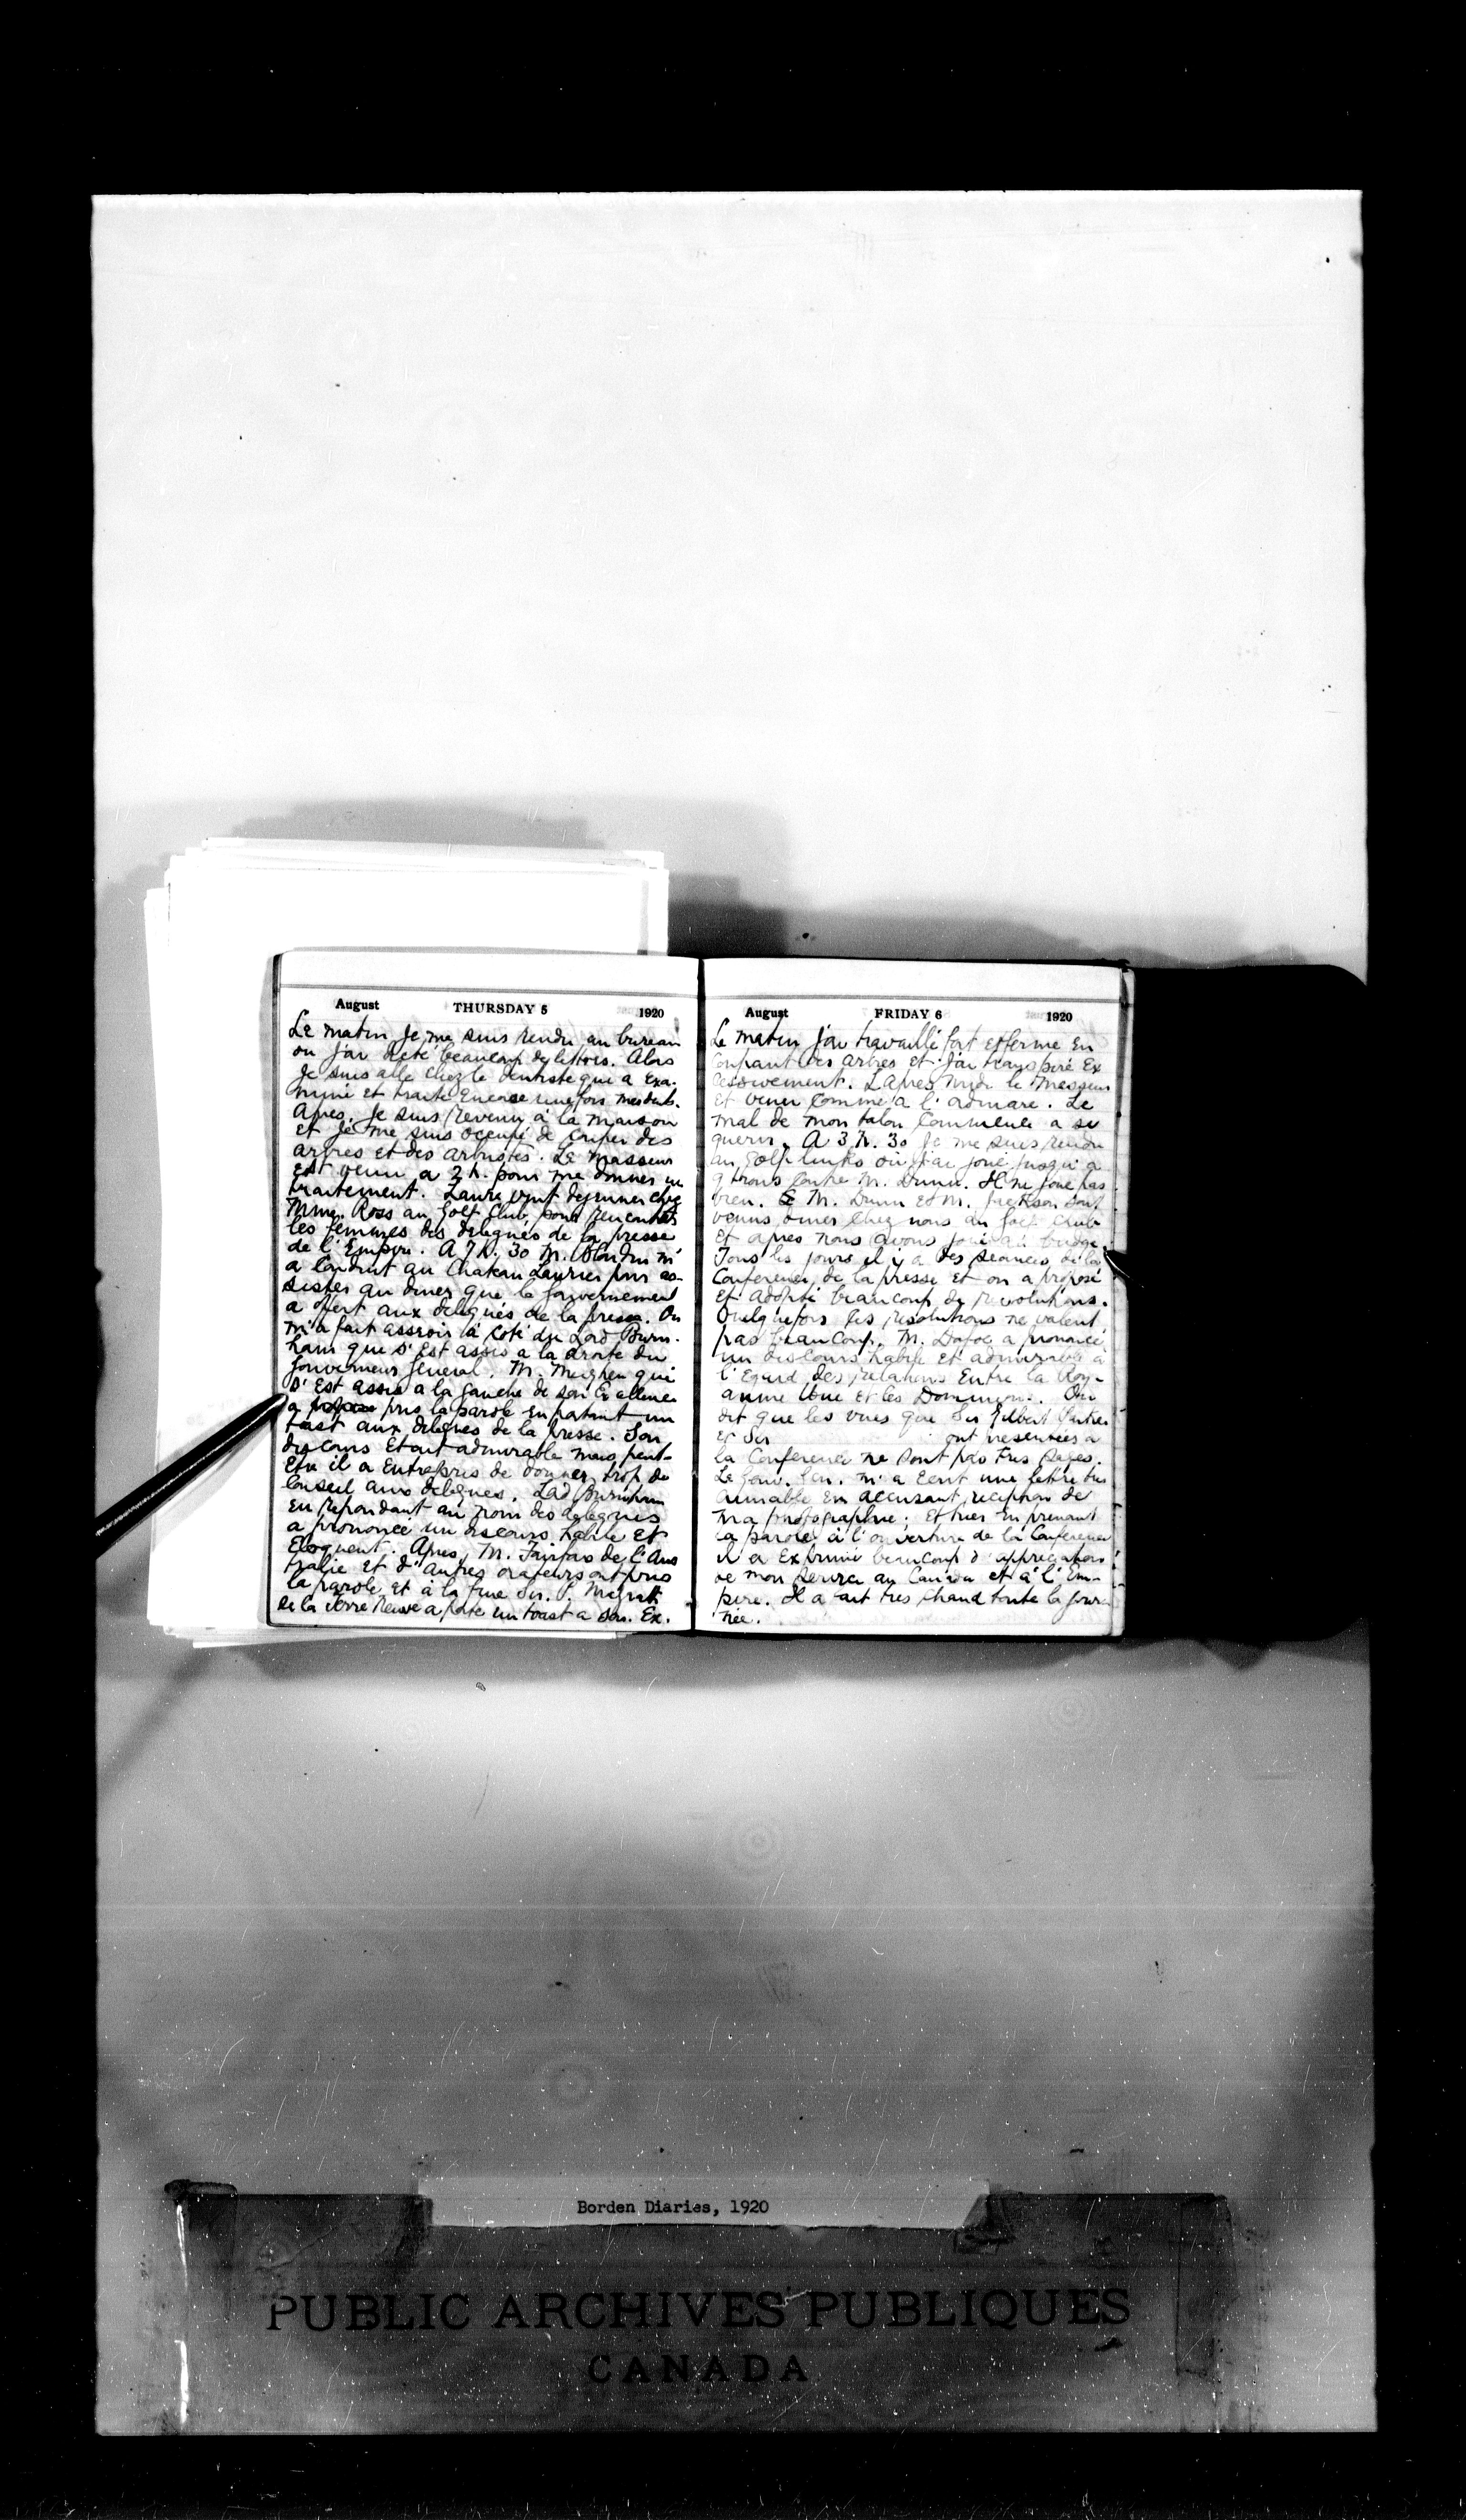 August THURSDAY 5 1920
Le matin je me suis rendu au bureau
ou j'ai dicté beaucoup de lettres. Alors
je suis allé chez le dentiste qui a exa-
miné et traité encore une fois mes dents.
Apres je suis revenu à la maison
et je me suis occupé de couper des
arbres et des arbustes. Le masseur
est venu a 2 h. pour me donner un
traitement. Laure vint dejeuner chez
Mme. Ross au Golf Club, pour rencontrer
les femmes des delegués de la presse
de l'Empire. A 7 h. 30 M. Blondin m'
a conduit au Chateau Laurier pour as-
sister au diner que le gouvernement
a offert aux delegués de la presse. On
m'a fait asseoir à coté de Lord Burn-
ham qui s'est assis a la droite du
gouverneur general. M. Meighen qui
s'est assis a la gauche de son Excellence
a pris la parole en portant un
toast aux delegués de la presse. Son
discours etait admirable mais peut-
etre il a entrepris de donner trop de
conseil aux delegues. Lord Burnham
en repondant au nom des delegues
a prononcé un discours habile et
eloquent. Apres, M. Fairfax de l'Aus
tralie et d'autres orateurs ont pris
la parole et à la fine Sir. P. McGrath
de la Terre Neuve a porté un toast a son. Ex.
August FRIDAY 6 1920
Le matin j'ai travaillé fort et ferme en
coupant des arbres et j'ai transpiré ex
cessivement. L'apres midi le masseur
est venu comme a l'
mal de mon talon commence a se
guerir. A 3 h. 30 je me suis rendu
au golf links où j'ai joué jusqu'a
9 trous contre M. Dunn. Il ne joue pas
bien. M. Dunn et M. Jackson sont
venus diner chez nous au Golf Club
et apres nous avons joué au bridge.
Tous les jours il y a des seances de la
Conference de la presse et on a proposé
et adopté beaucoup de resolutions.
Quelquefois les resolutions ne valent
pas beaucoup. M. Dafoe a prononcé
un discours habile et admirable à
l'egard des relations entre la Roy-
aume Unie et les Dominions. On
dit que les vues que Sir Gilbert Parker
et Sir ont presentées a
la Conference ne sont pas tres sages.
Le Gouv. Gen. m'a ecrit une lettre tres
aimable en accusant reception de
ma photographie; et hier en prenant
la parole à l'ouverture de la Conference
il a exprimé beaucoup d'appreciation
de mon service au Canada et à l'Em-
pire. Il a fait tres chaud toute la jour-
née.
Borden Diaries, 1920
PUBLIC ARCHIVES PUBLIQUES
CANADA